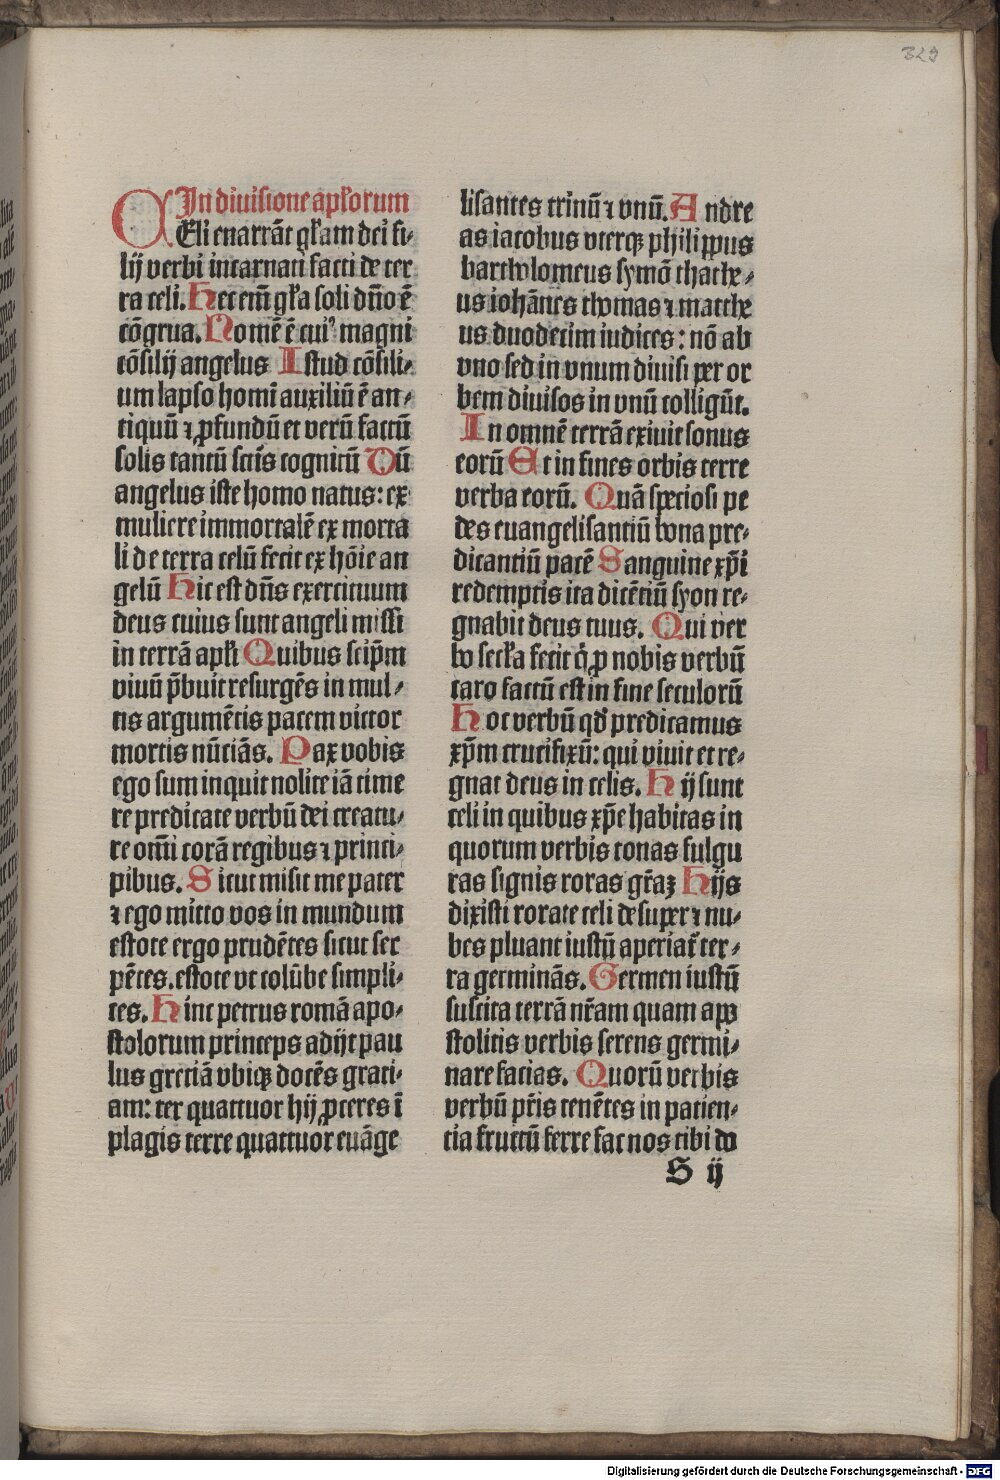 329
In diuisione apl'orum
CEli enarrāt gl'am dei fi⸗
lij verbi incarnati facti de ter
ra celi. Hec em̄ gl'a soli dño ē
cōgrua. Nomē ē cui⁹ magni
cōsilij angelus Istud cōsili⸗
um lapso homī auxiliū ē an⸗
tiquū ⁊ ꝓfundū et verū factū
solis tantū sctīs cognitū Dū
angelus iste homo natus: ex
muliere immortalē ex morta
li de terra celū fecit ex hōie an
gelū Hic est dn̄s exercituum
deus cuius sunt angeli missi
in terrā apl'i Quibus seip̄m
viuū p̄buit resurgēs in mul⸗
tis argumētis pacem victor
mortis nūciās. Pax vobis
ego sum inquit nolite iā time
re predicate verbū dei creatu⸗
re om̄i corā regibus ⁊ princi⸗
pibus. Sicut misit me pater
⁊ ego mitto vos in mundum
estote ergo prudētes sicut ser
pētes. estote vt colūbe simpli⸗
ces. Hinc petrus romā apo⸗
stolorum princeps adijt pau
lus greciā vbiqꝫ docēs grati⸗
am: ter quattuor hij ꝓceres ī
plagis terre quattuor euāge
lisantes trinū ⁊ vnū. Andre
as iacobus vterqꝫ philippus
bartholomeus symō thathe⸗
us iohānes thomas ⁊ matthe
us duodecim iudices: nō ab
vno sed in vnum diuisi per or
bem diuisos in vnū colligūt.
In omnē terrā exiuit sonus
eorū Et in fines orbis terre
verba eorū. Quā speciosi pe
des euangelisantiū bona pre⸗
dicantiū pacē Sanguine xp̄i
redemptis ita dicētiū syon re⸗
gnabit deus tuus. Qui ver
bo secl'a fecit q̄ ꝓ nobis verbū
caro factū est in fine seculorū
Hoc verbū qd̄ predicamus
xp̄m crucifixū: qui viuit et re⸗
gnat deus in celis. Hij sunt
celi in quibus xp̄e habitas in
quorum verbis tonas fulgu
ras signis roras gr̄aꝫ Hijs
dixisti rorate celi desuper ⁊ nu⸗
bes pluant iustū aperiat̄ ter⸗
ra germinās. Germen iustū
suscita terrā nr̄am quam apo
stolicis verbis serens germi⸗
nare facias. Quorū verbis
verbū pr̄is tenētes in patien⸗
tia fructū ferre fac nos tibi do
S ij
Digitalisierung gefördert durch die Deutsche Forschungsgemeinschaft - DFG